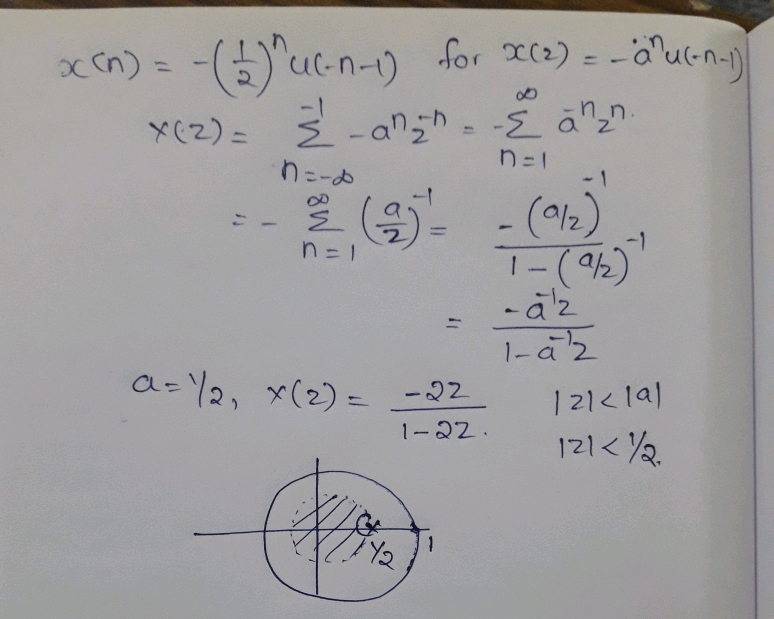 x(n) = -(1/2)^n u(-n-1) for x(z) = -a^n u(-n-1)
X(z) = Σ_{n=-∞}^{-1} -a^n z^{-n} = -Σ_{n=1}^{∞} a^{-n} z^n.
= - Σ_{n=1}^{∞} (a/z)^{-1} = -(a/z)^{-1} / 1-(a/z)^{-1}
= -a^{-1}z / 1-a^{-1}z
a = 1/2, X(z) = -2z / 1-2z. |z|<|a|
|z|<1/2.
1/2 1